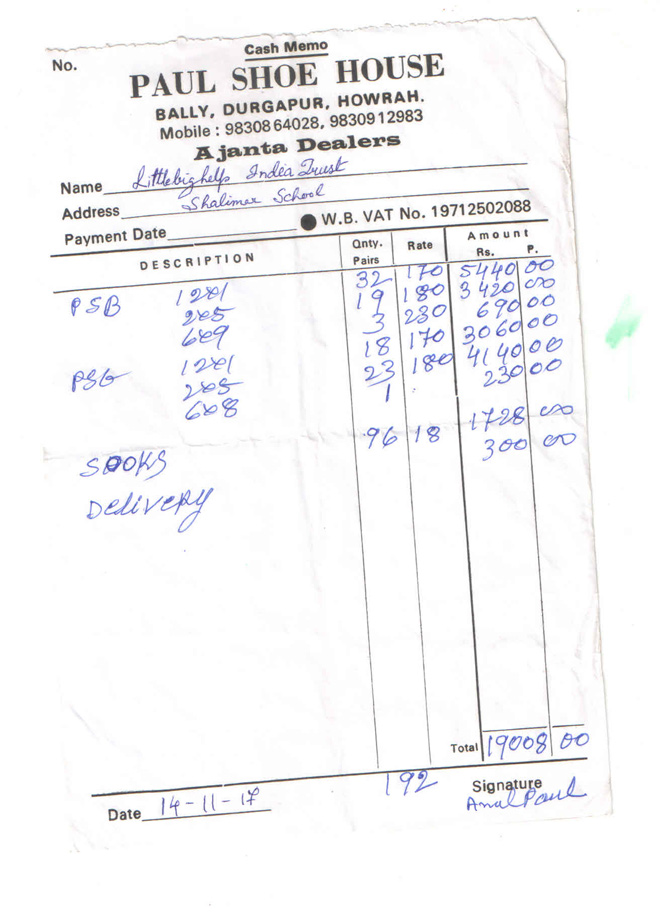 Cash Memo
No.
PAUL SHOE HOUSE
BALLY, DURGAPUR, HOWRAH.
Mobile : 9830864028, 9830912983
Ajanta Dealers
Name Littlebighelp India Trust
Address Shalimar School
Payment Date W.B. VAT No. 19712502088
DESCRIPTION Qnty. Pairs Rate Amount Rs. P.
PSB 1201 32 170 5440 00
205 19 180 3420 00
609 3 230 690 00
PSG 1201 18 170 3060 00
205 23 180 4140 00
608 1 230 00
SOOKS 96 18 1728 00
Delivery 300 00
Total 19008 00
192
Signature
Date 14-11-17 Amal Paul